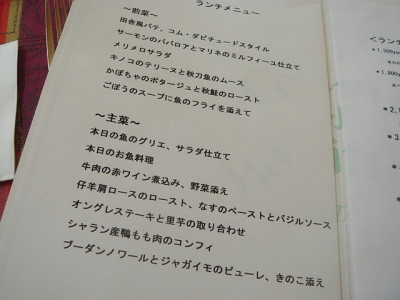 ランチメニュー
～前菜～
田舎風パテ、コム・ダビチュードスタイル
サーモンのババロアとマリネのミルフィーユ仕立て
メリメロサラダ
キノコのテリーヌと秋刀魚のムース
かぼちゃのポタージュと秋鮭のロースト
ごぼうのスープに魚のフライを添えて
～主菜～
本日の魚のグリエ、サラダ仕立て
本日のお魚料理
牛肉の赤ワイン煮込み、野菜添え
仔羊肩ロースのロースト、なすのペーストとバジルソース
オングレステーキと里芋の取り合わせ
シャラン産鴨もも肉のコンフィ
ブーダンノワールとジャガイモのピューレ、きのこ添え
＜ランチ
*1,500y
*1,800y
*2,
*3